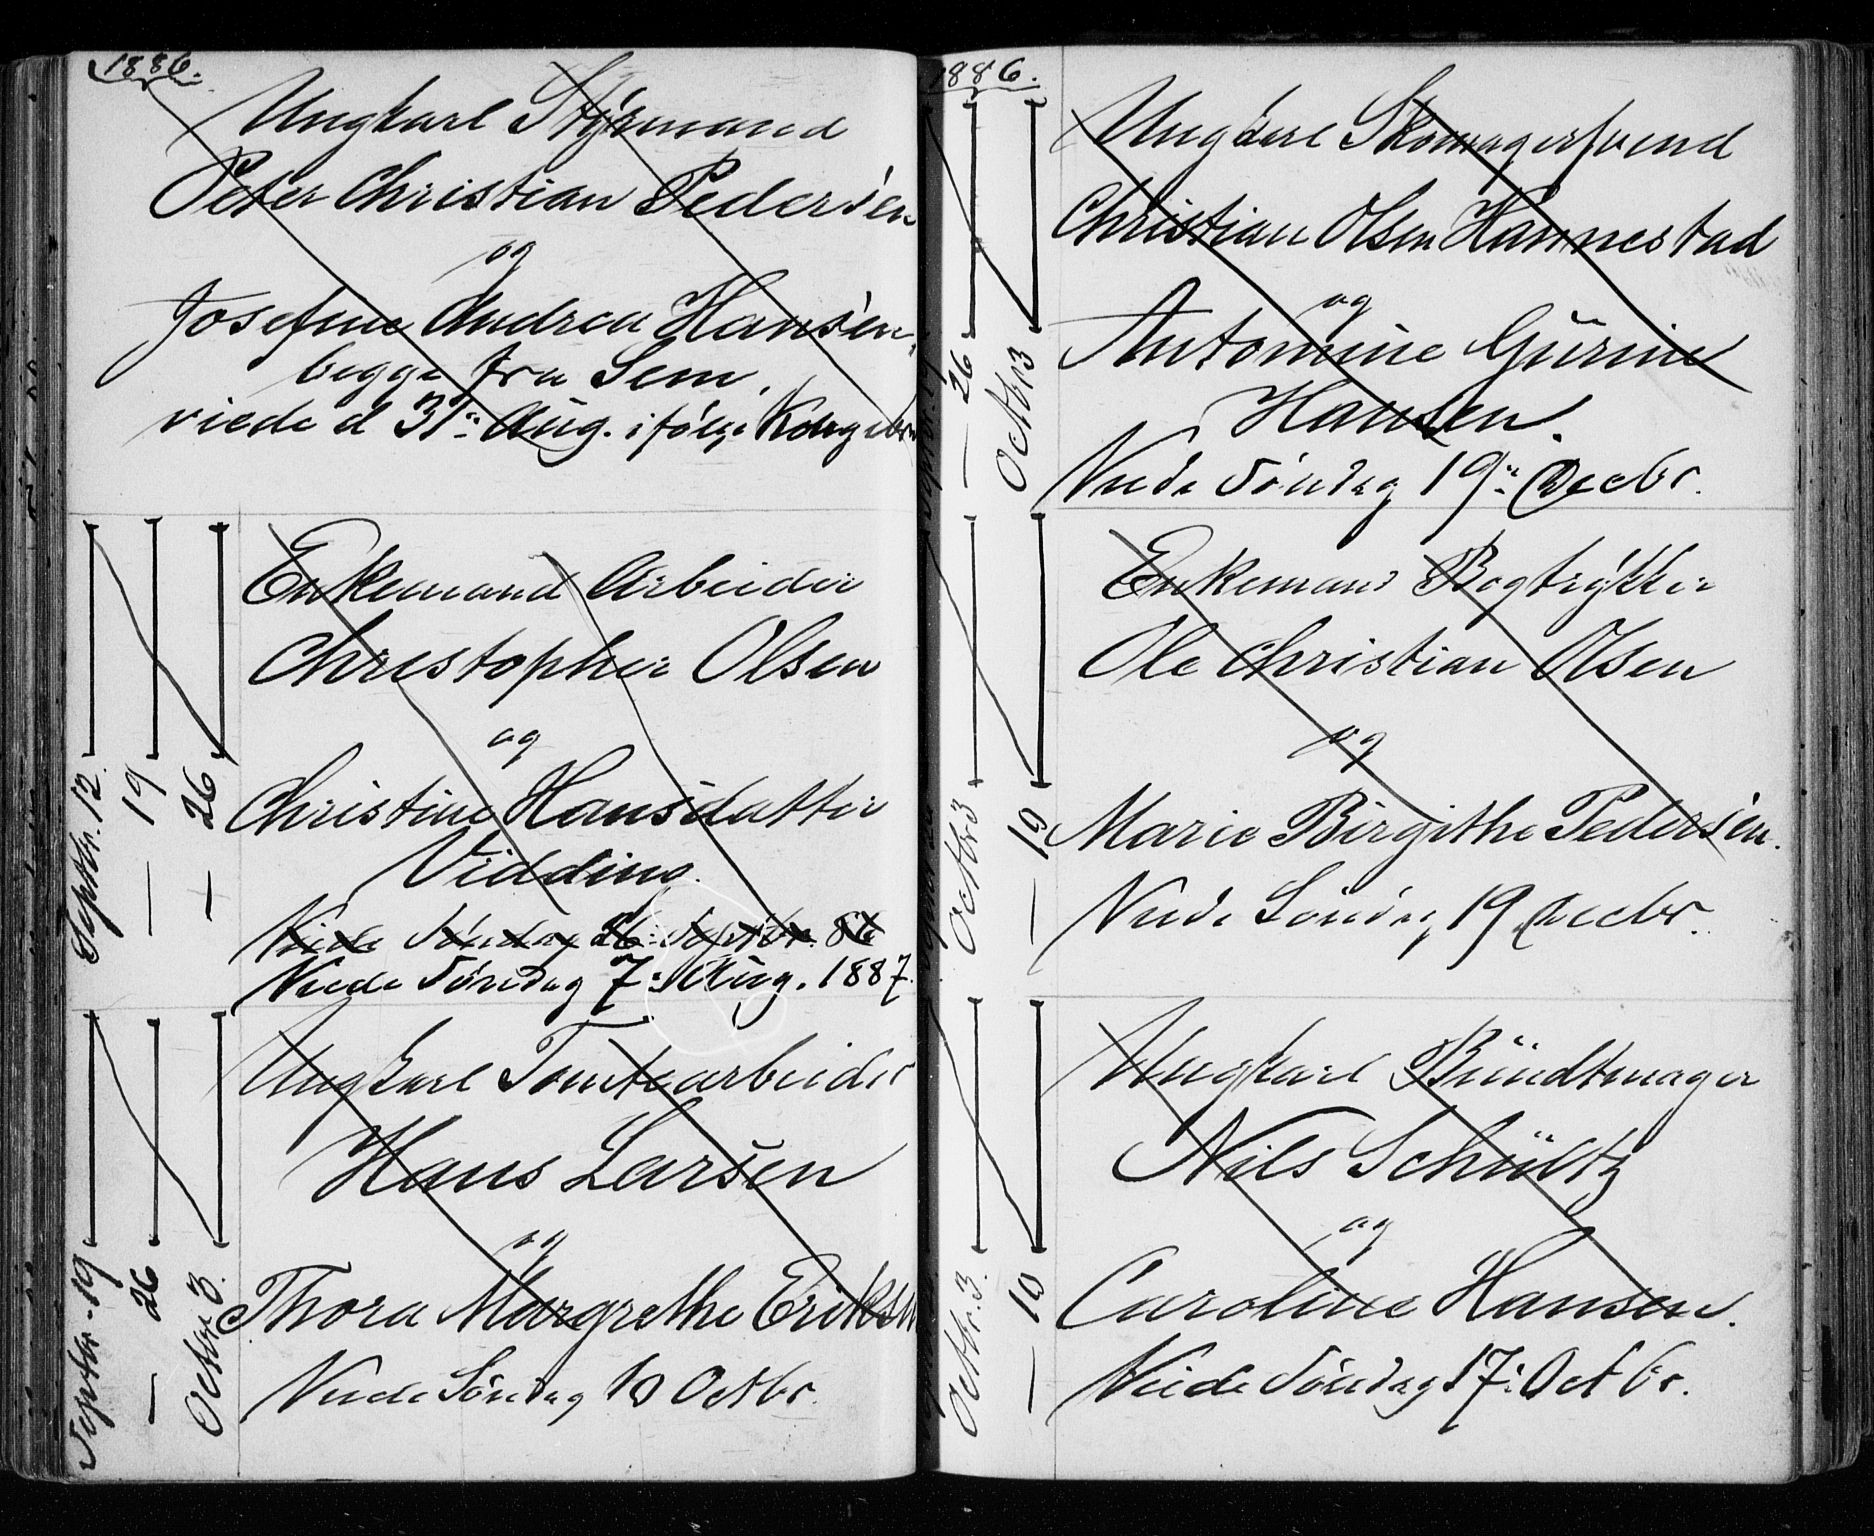 1886.
Ungkarl Styrmand
Peter Christian Pedersen
og
Josefine Andrea Hansen,
begge fra Sem.
viede d 31te Aug. ifølge Kongebr
Septbr. 12.
— 19
— 26
Enkemand Arbeider
Christopher Olsen
og
Christine Hansdatter
Vidding.
Viede Søndag 26: Septbr. 86
Viede Søndag 7: Aug. 1887.
Septbr. 19
— 26
Octbr 3.
Ungkarl Tomtearbeider
Hans Larsen
og
Thora Margrethe Eriksen
Viede Søndag 10 Octbr.
1886.
— 26
Octbr 3
Ungkarl Skomagersvend
Christian Olsen Hannestad
og
Antomine Gurine
Hansen.
Viede Søndag 19de Decbr.
Octbr 3
— 10
Enkemand Bogtrykker
Ole Christian Olsen
og
Marie Birgithe Pedersen.
Viede Søndag 19 Decbr.
Octbr. 3.
— 10
Ungkarl Bündtmager
Nils Schültz
og
Caroline Hansen.
Viede Søndag 17: Octbr.